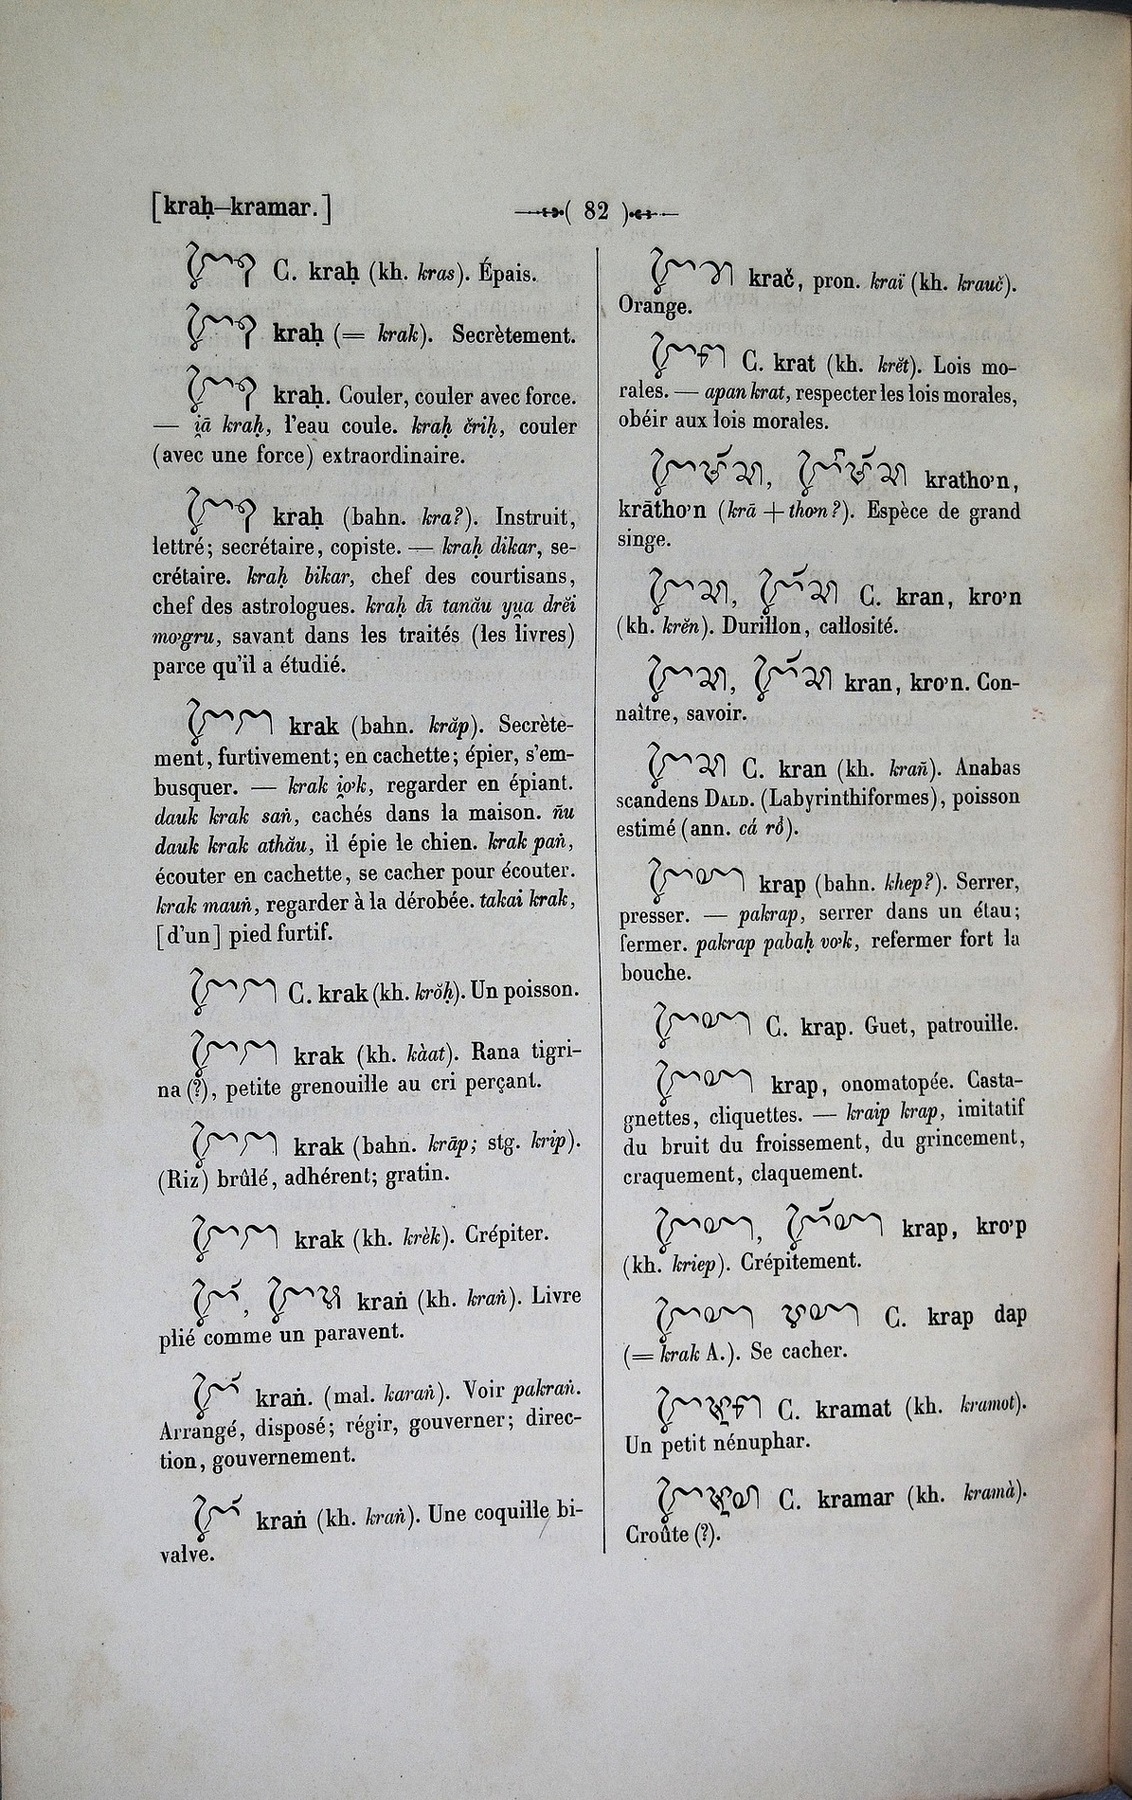 [kraḥ–kramar.]
( 82 )
C. kraḥ (kh. kras). Épais.
kraḥ (= krak). Secrètement.
kraḥ. Couler, couler avec force.
— i̯ā kraḥ, l'eau coule. kraḥ čriḥ, couler
(avec une force) extraordinaire.
kraḥ (bahn. kra?). Instruit,
lettré; secrétaire, copiste. — kraḥ dikar, se-
crétaire. kraḥ bikar, chef des courtisans,
chef des astrologues. kraḥ dī tanău yu̯a drĕi
mơgru, savant dans les traités (les livres)
parce qu'il a étudié.
krak (bahn. krăp). Secrète-
ment, furtivement; en cachette; épier, s'em-
busquer. — krak i̯ơk, regarder en épiant.
dauk krak saṅ, cachés dans la maison. ñu
dauk krak athău, il épie le chien. krak paṅ,
écouter en cachette, se cacher pour écouter.
krak mauṅ, regarder à la dérobée. takai krak,
[d'un] pied furtif.
C. krak (kh. krŏḥ). Un poisson.
krak (kh. kàat). Rana tigri-
na (?), petite grenouille au cri perçant.
krak (bahn. krāp; stg. krip).
(Riz) brûlé, adhérent; gratin.
krak (kh. krèk). Crépiter.
kraṅ (kh. kraṅ). Livre
plié comme un paravent.
kraṅ. (mal. karaṅ). Voir pakraṅ.
Arrangé, disposé; régir, gouverner; direc-
tion, gouvernement.
kraṅ (kh. kraṅ). Une coquille bi-
valve.
krač, pron. kraï (kh. krauč).
Orange.
C. krat (kh. krĕt). Lois mo-
rales. — apan krat, respecter les lois morales,
obéir aux lois morales.
krathơn,
krāthơn (krā + thơn?). Espèce de grand
singe.
C. kran, krơn
(kh. krĕn). Durillon, callosité.
kran, krơn. Con-
naître, savoir.
C. kran (kh. krañ). Anabas
scandens Dald. (Labyrinthiformes), poisson
estimé (ann. cá rô).
krap (bahn. khep?). Serrer,
presser. — pakrap, serrer dans un étau;
fermer. pakrap pabaḥ vơk, refermer fort la
bouche.
C. krap. Guet, patrouille.
krap, onomatopée. Casta-
gnettes, cliquettes. — kraip krap, imitatif
du bruit du froissement, du grincement,
craquement, claquement.
krap, krơp
(kh. kriep). Crépitement.
C. krap dap
(= krak A.). Se cacher.
C. kramat (kh. kramot).
Un petit nénuphar.
C. kramar (kh. kramà).
Croûte (?).